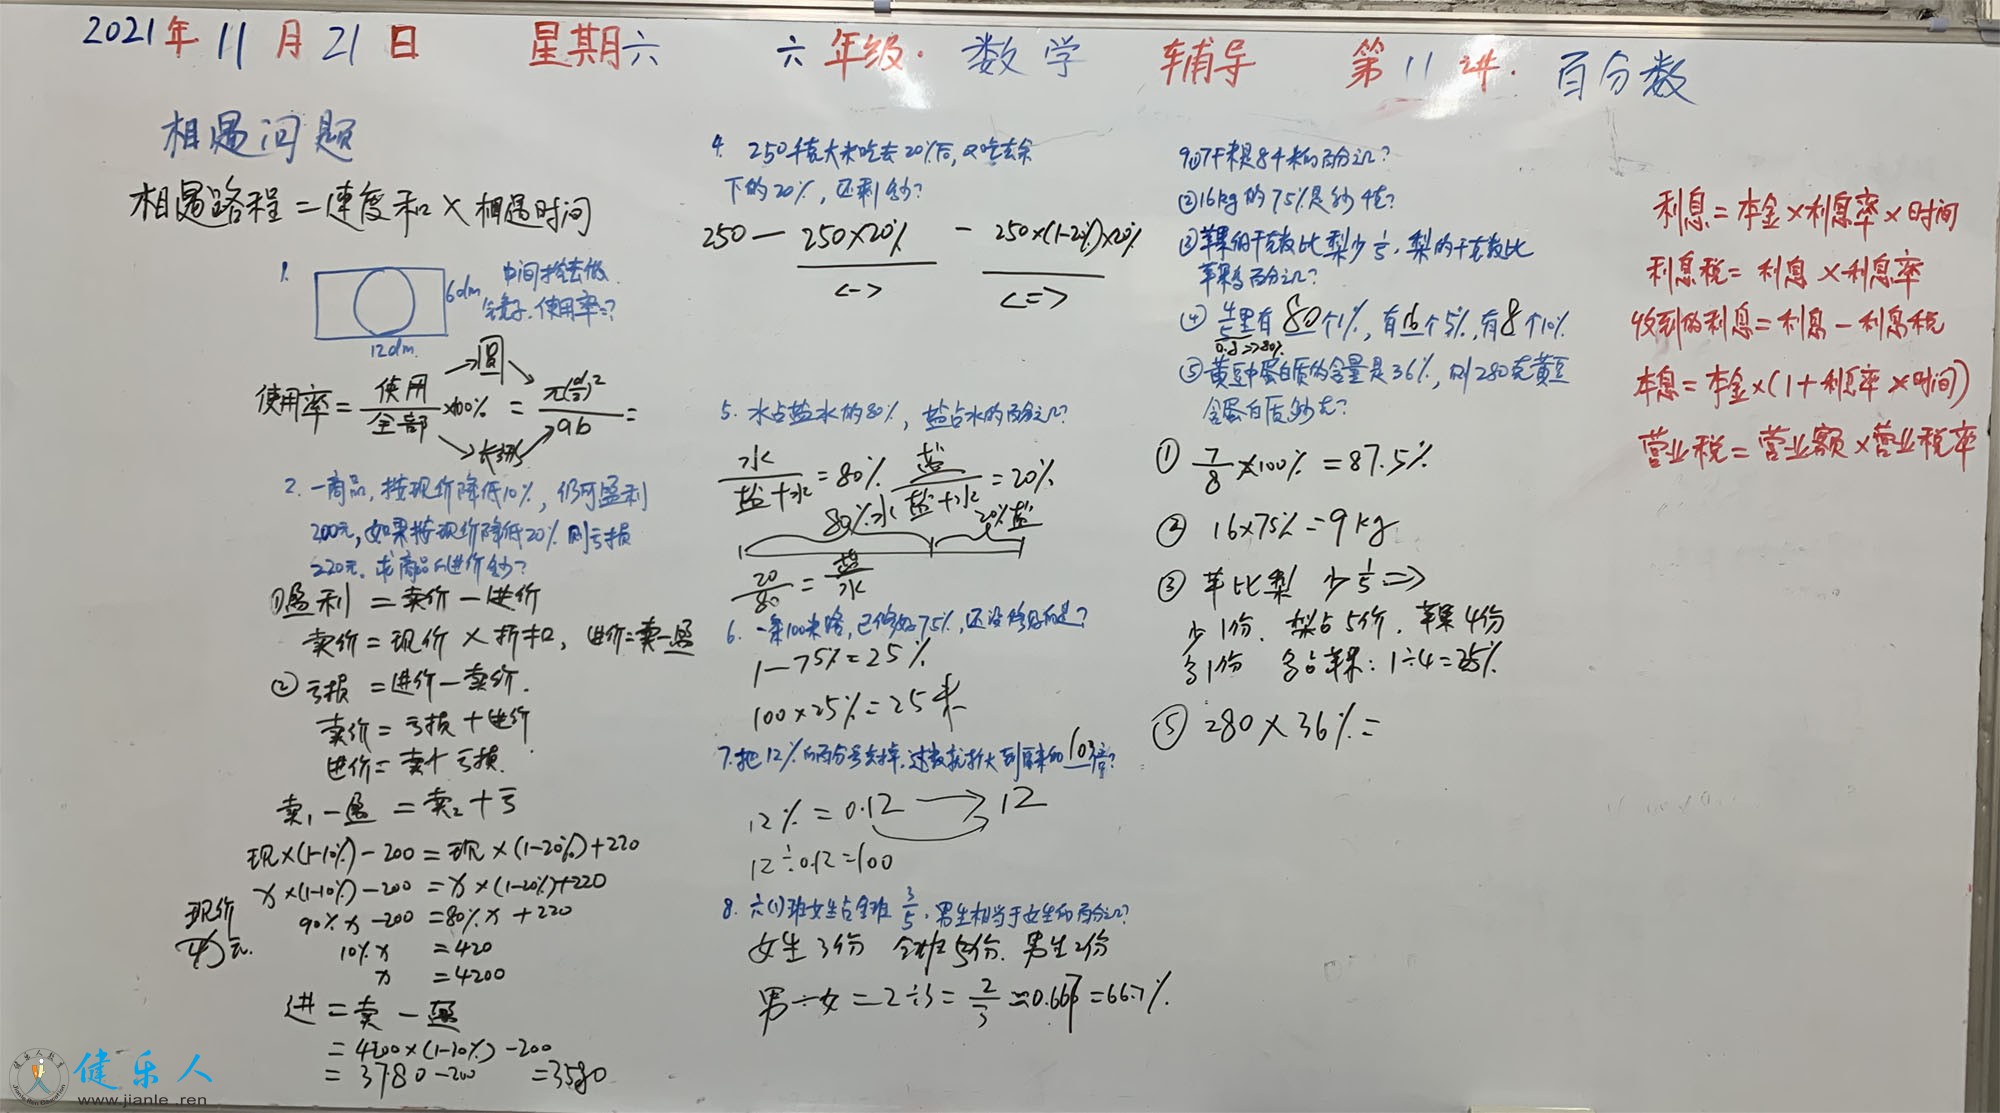 2021年11月21日 星期六 六年级·数学 辅导 第11讲·百分数
相遇问题
相遇路程=速度和×相遇时间
1.
6dm
12dm
中间挖去做
镜子.使用率=?
使用率=使用/全部×100%=π(d/2)²/ab=
圆
长方形
2.一商品,按现价降低10%,仍可盈利
200元,如果按现价降低20%则亏损
220元.求商品的进价多少?
①盈利=卖价-进价
卖价=现价×折扣,进价=卖-盈
②亏损=进价-卖价.
卖价=亏损+进价
进价=卖+亏损.
卖₁-盈=卖₂+亏
现×(1-10%)-200=现×(1-20%)+220
x×(1-10%)-200=x×(1-20%)+220
90%x-200=80%x+220
现价
元.
10%x=420
x=4200
进=卖-盈
=4200×(1-10%)-200
=3780-200=3580
4. 250千克大米吃去20%后,又吃去余
下的20%,还剩多少?
250-250×20%-250×(1-20%)×20%
<->
<=>
5.水占盐水的80%,盐占水的百分之几?
水/盐+水=80% 盐/盐+水=20%
80%水 20%盐
20/80=盐/水
6.一条100米路,已修好75%,还没修好的是?
1-75%=25%
100×25%=25米
7.把12%的百分号去掉.这数就扩大到原来的100倍?
12%=0.12 12
12÷0.12=100
8.六(1)班女生占全班3/5,男生相当于女生的百分之几?
女生3份 全班5份.男生2份
男÷女=2÷3=2/3≈0.667=66.7%
9.①7千米是8千米的百分之几?
②16kg的75%是多少千克?
③苹果的千克数比梨少1/5,梨的千克数比
苹果多百分之几?
④4/5里有80个1%,有16个5%,有8个10%
0.8=>80%
⑤黄豆中蛋白质的含量是36%,则280克黄豆
含蛋白质多少克?
①7/8×100%=87.5%
②16×75%=9kg
③苹比梨 少1/5=>
少1份.梨占5份.苹果4份
多1份 多占苹果:1÷4=25%
⑤280×36%=
利息=本金×利息率×时间
利息税=利息×利息率
收到的利息=利息-利息税
本息=本金×(1+利息率×时间)
营业税=营业额×营业税率
健乐人
www.jianle.ren